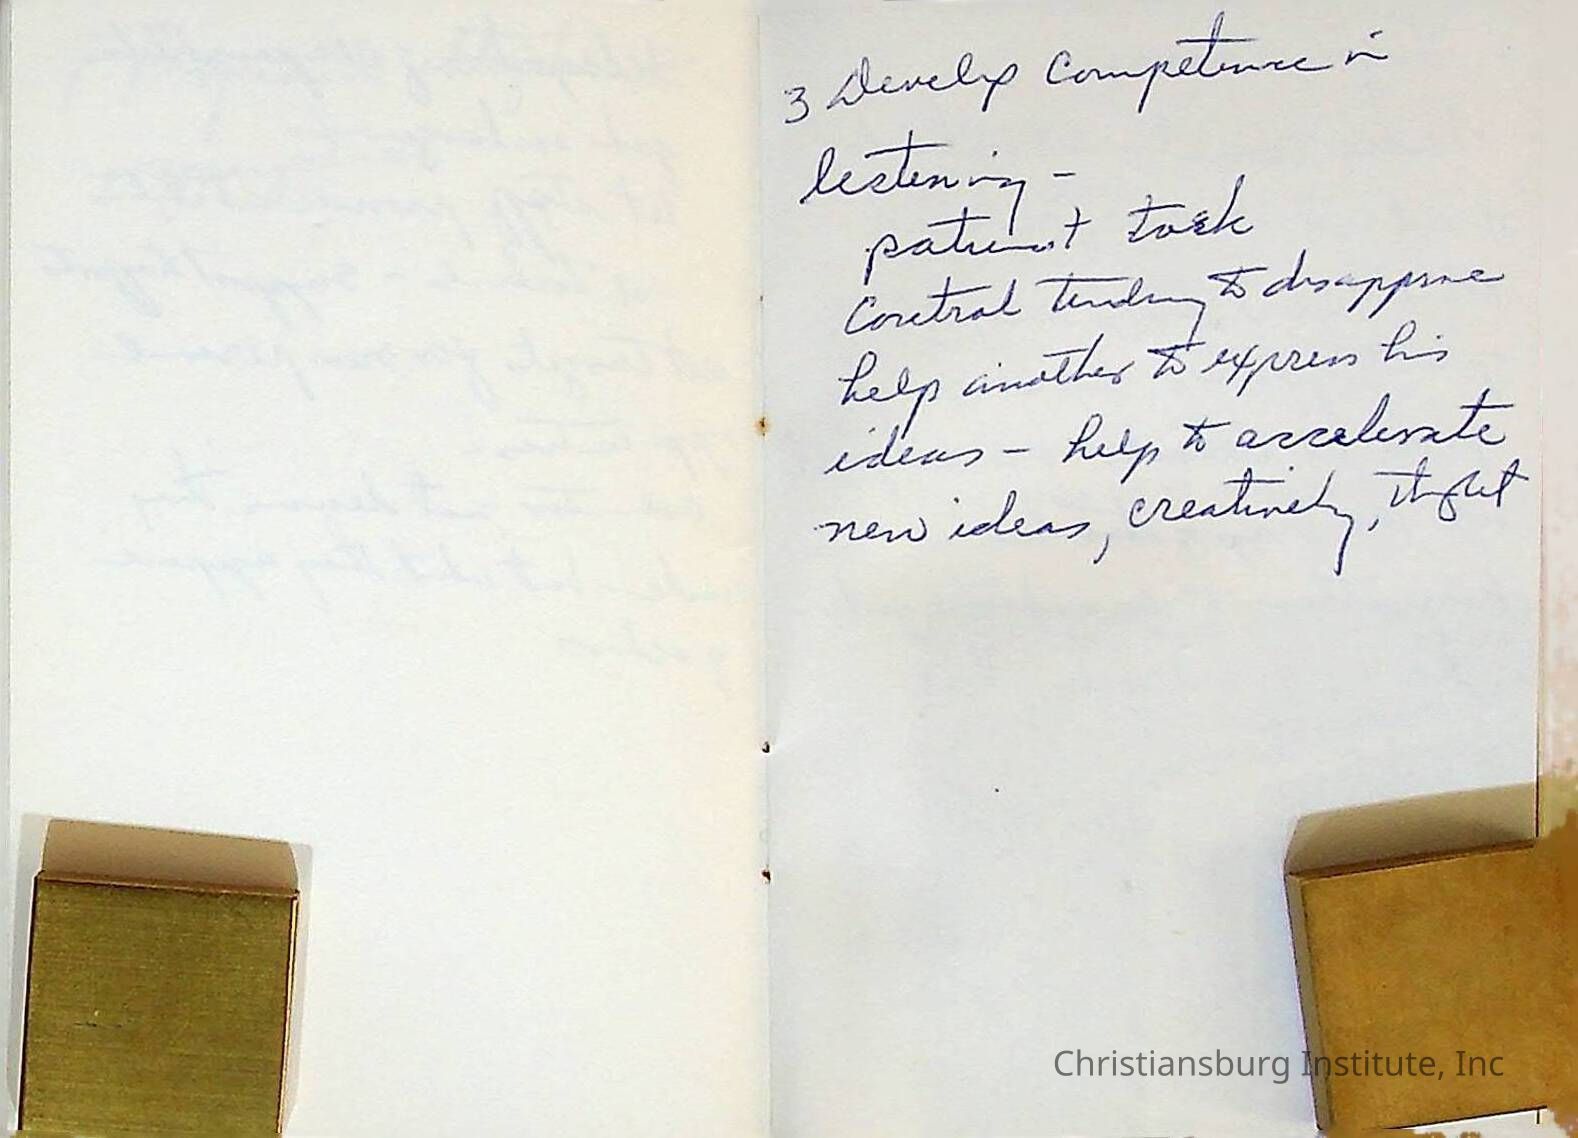 3 Develop Competence in
listening -
patient task
Control tendency to disapprove
help another to express his
ideas - help to accelerate
new ideas, creatively,
Christiansburg Institute, Inc